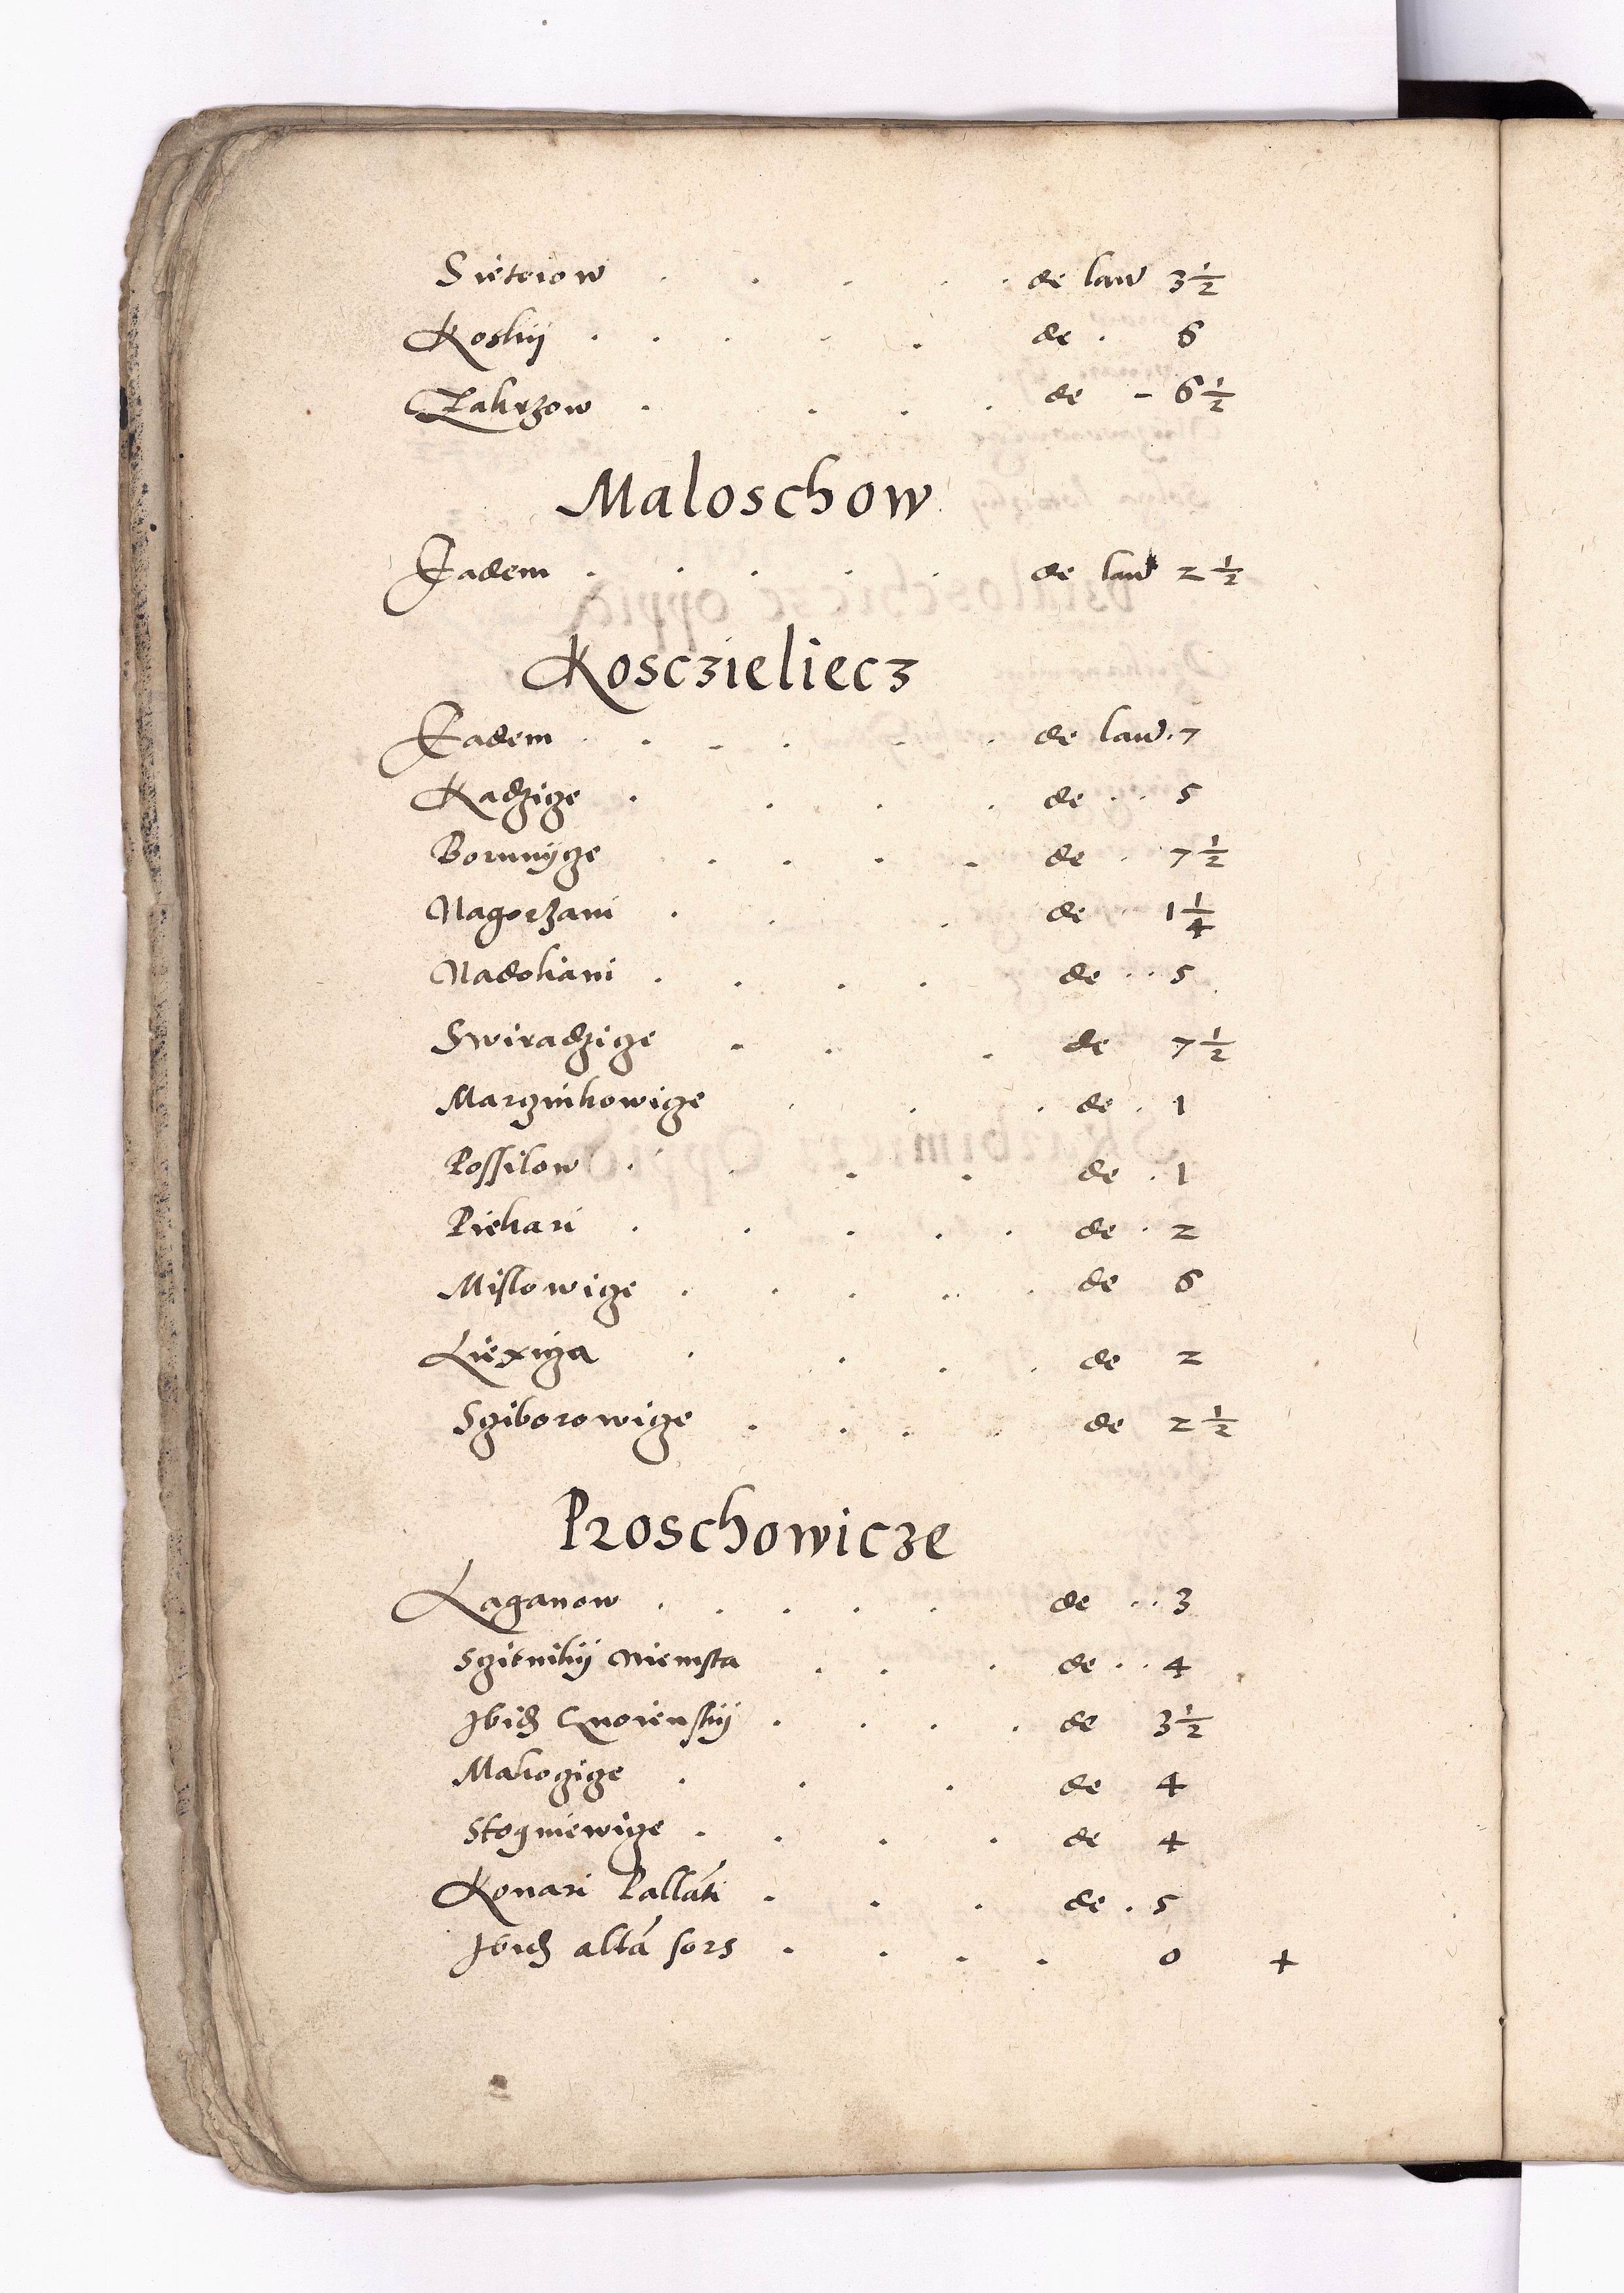 Sieteiow . . . . . de law 3 1/2
Koskÿ . . . . . de . 6
Zakrzow . . . . de - 6 1/2
Maloschow
Eadem . . . . . de law 2 1/2
Kosczieliecz
Eadem . . . . . . de law. 7
Kadzicze . . . . de . . 5
Boruniÿcze . . . . de . 7 1/2
Nagorzani . . . de . . 1 1/4
Nadokani . . . . de . . 5
Swiradzicze . . . de 7 1/2
Marcznikowicze . . . de . 1
Possilow . . . . de . 1
Piekari . . . . . de . 2
Mislowicze . . . . . de 6
Liexicza . . . . de 2
Scziborowicze . . . . de 2 1/2
Proschowicze
Laganow . . . . . de . . 3
Sczitnikÿ Niemsta . . . de . . 4
Ibid Gnoienskÿ . . . . de 3 1/2
Makoczicze . . . de 4
Stogniewicze . . . . de 4
Konari Pallati . . . de . 5
Ibid altã sors . . . . 0 +